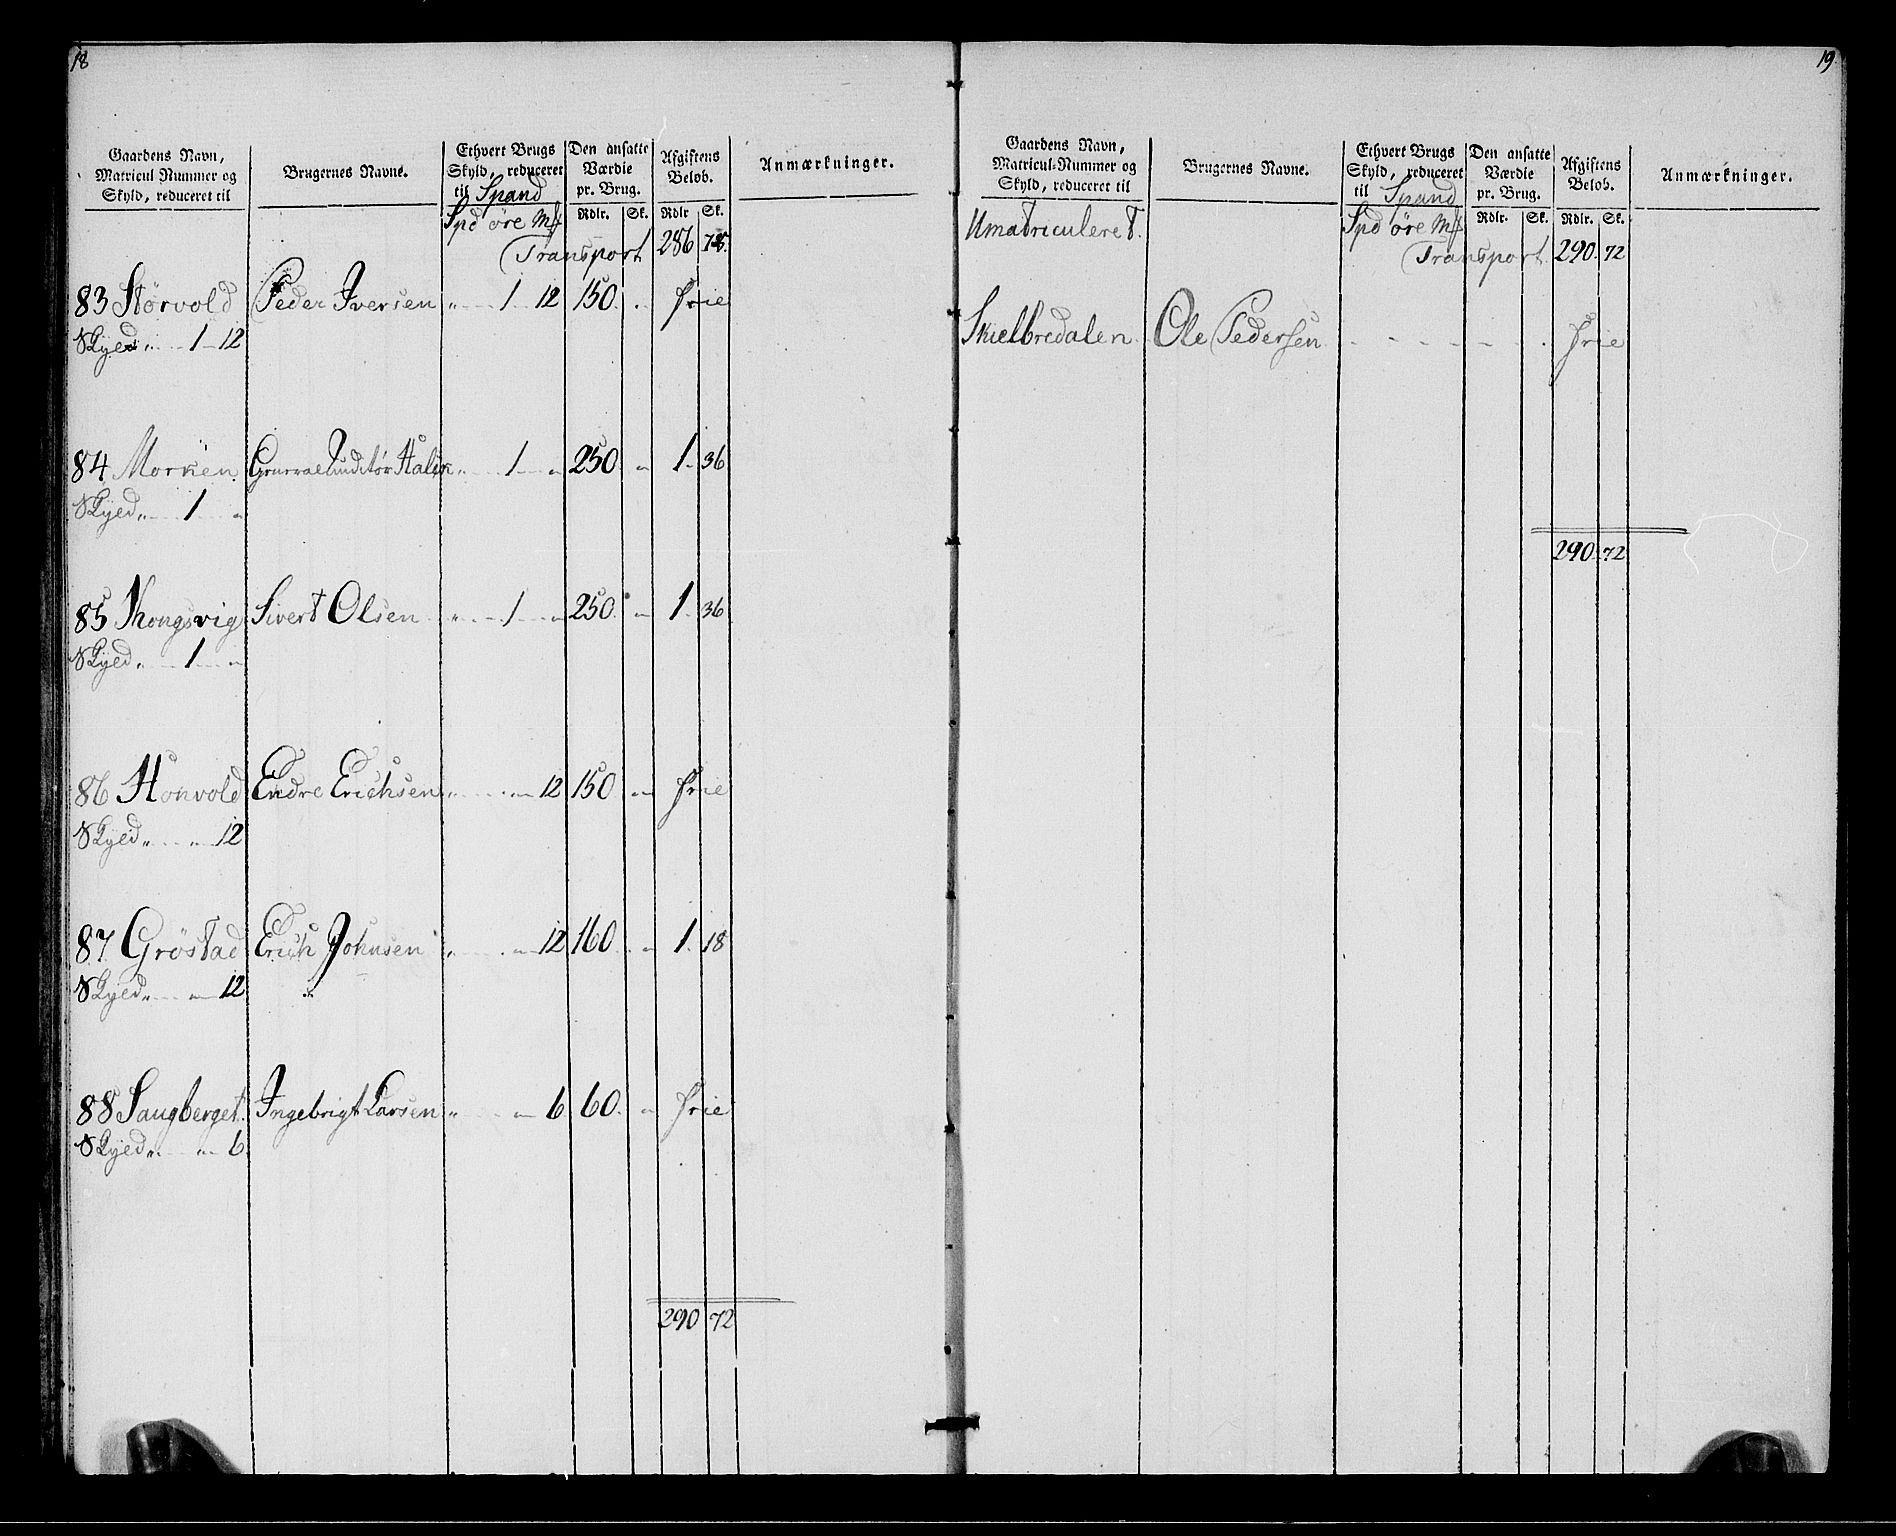 18
Gaardens Navn, Matricul Nummer og Skyld, reduceret til
Brugernes Navne.
Ethvert Brugs Skyld, reduceret til Spand
Spd öre Mk
Den ansatte Værdie pr. Brug.
Rdlr. Sk.
Afgiftens Beløb.
Rdlr Sk.
Anmærkninger.
Transport 286
83 Störvold Peder Iversen " 1 12 150 " frie
Skyld " 1 12
84 Morken General Auditör " 1 " 250 " 1 36
Skyld " 1 "
85 Kongsvig Sivert Olsen " 1 " 250 " 1 36
Skyld " 1 "
86 Honvold Endre Erichsen " " 12 150 " frie
Skyld " " 12
87 Gröstad Erich Johnsen " " 12 160 " 1 18
Skyld " " 12
88 Saugberget Ingebrigt Larsen " " 6 60 " frie
Skyld " " 6
290 72
19
Gaardens Navn, Matricul-Nummer og Skyld, reduceret til
Brugernes Navne.
Ethvert Brugs Skyld, reduceret til Spand
Spd öre Mk
Den ansatte Værdie pr. Brug.
Rdlr. Sk.
Afgiftens Beløb.
Rdlr. Sk.
Anmærkninger.
Umatriculeret.
Transport 290 72
Skielbredalen Ole Pedersen frie
290 72